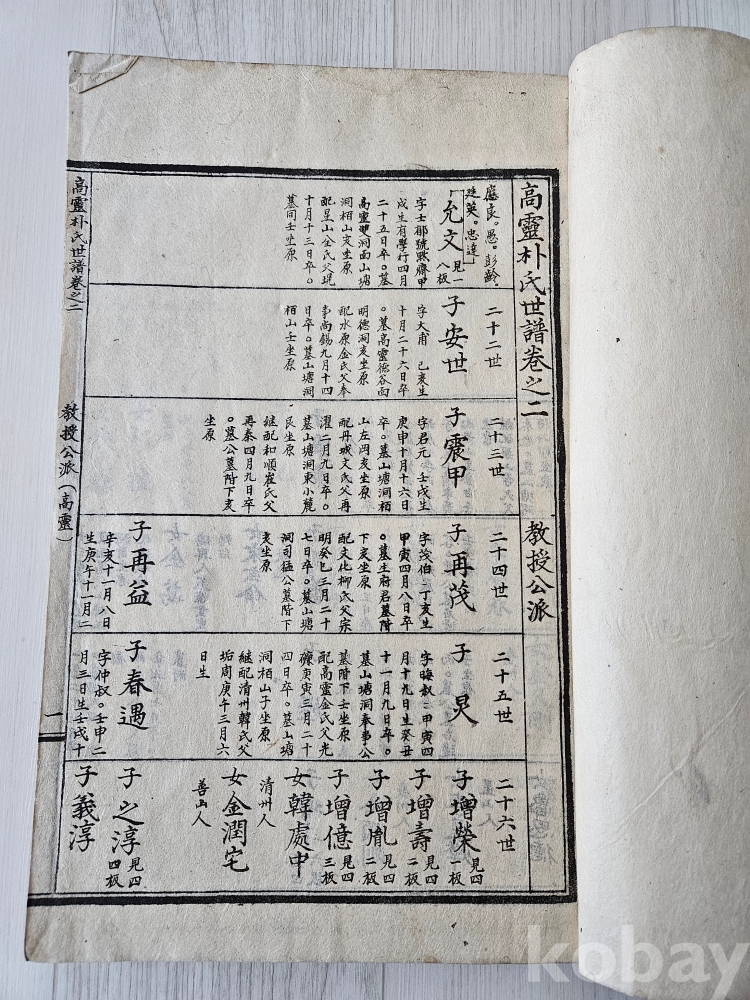 高靈朴氏世譜卷之二
教授公派
應良。愚。彭齡
廷英。忠達
允文 見一
八板
字士郁號默齋甲
戌生有學行四月
二十五日卒。墓
高靈雙洞面山塘
洞栢山亥坐原
配星山全氏父珉
十月十三日卒。
墓同壬坐原
二十二世
子安世
字大甫 己亥生
十月二十六日卒
。墓高靈德谷面
明德洞亥坐原
配水原金氏父奉
事尚錫九月十四
日卒。墓山塘洞
栢山壬坐原
二十三世
子震甲
字君元。壬戌生
庚申十月十六日
卒。墓山塘洞栢
山左岡亥坐原
配丹城文氏父再
濯二月九日卒。
墓山塘洞東小麓
艮坐原
継配和順崔氏父
再泰四月九日卒
。墓公墓階下亥
坐原
二十四世
子再茂
字茂伯。丁亥生
甲寅四月八日卒
。墓生府君墓階
下亥坐原
配文化柳氏父宗
明癸巳三月二十
七日卒。墓山塘
洞司猛公墓階下
亥坐原
子再益
辛亥十一月八日
生庚午十一月二
二十五世
子炅
字晦叔。甲寅四
月十九日生癸丑
十一月九日卒。
墓山塘洞奉事公
墓階下壬坐原
配高靈金氏父光
礦庚寅三月二十
四日卒。墓山塘
洞栢山子坐原
継配清州韓氏父
垢周庚午三月六
日生
子春遇
字仲叔。壬申二
月三日生壬戌十
二十六世
子增榮 見四
一板
子增壽 見四
二板
子增胤 見四
二板
子增億 見四
三板
女韓處中
清州人
女金潤宅
善山人
子之淳 見四
四板
子義淳
高靈朴氏世譜卷之二
教授公派(高靈)
一
kobay